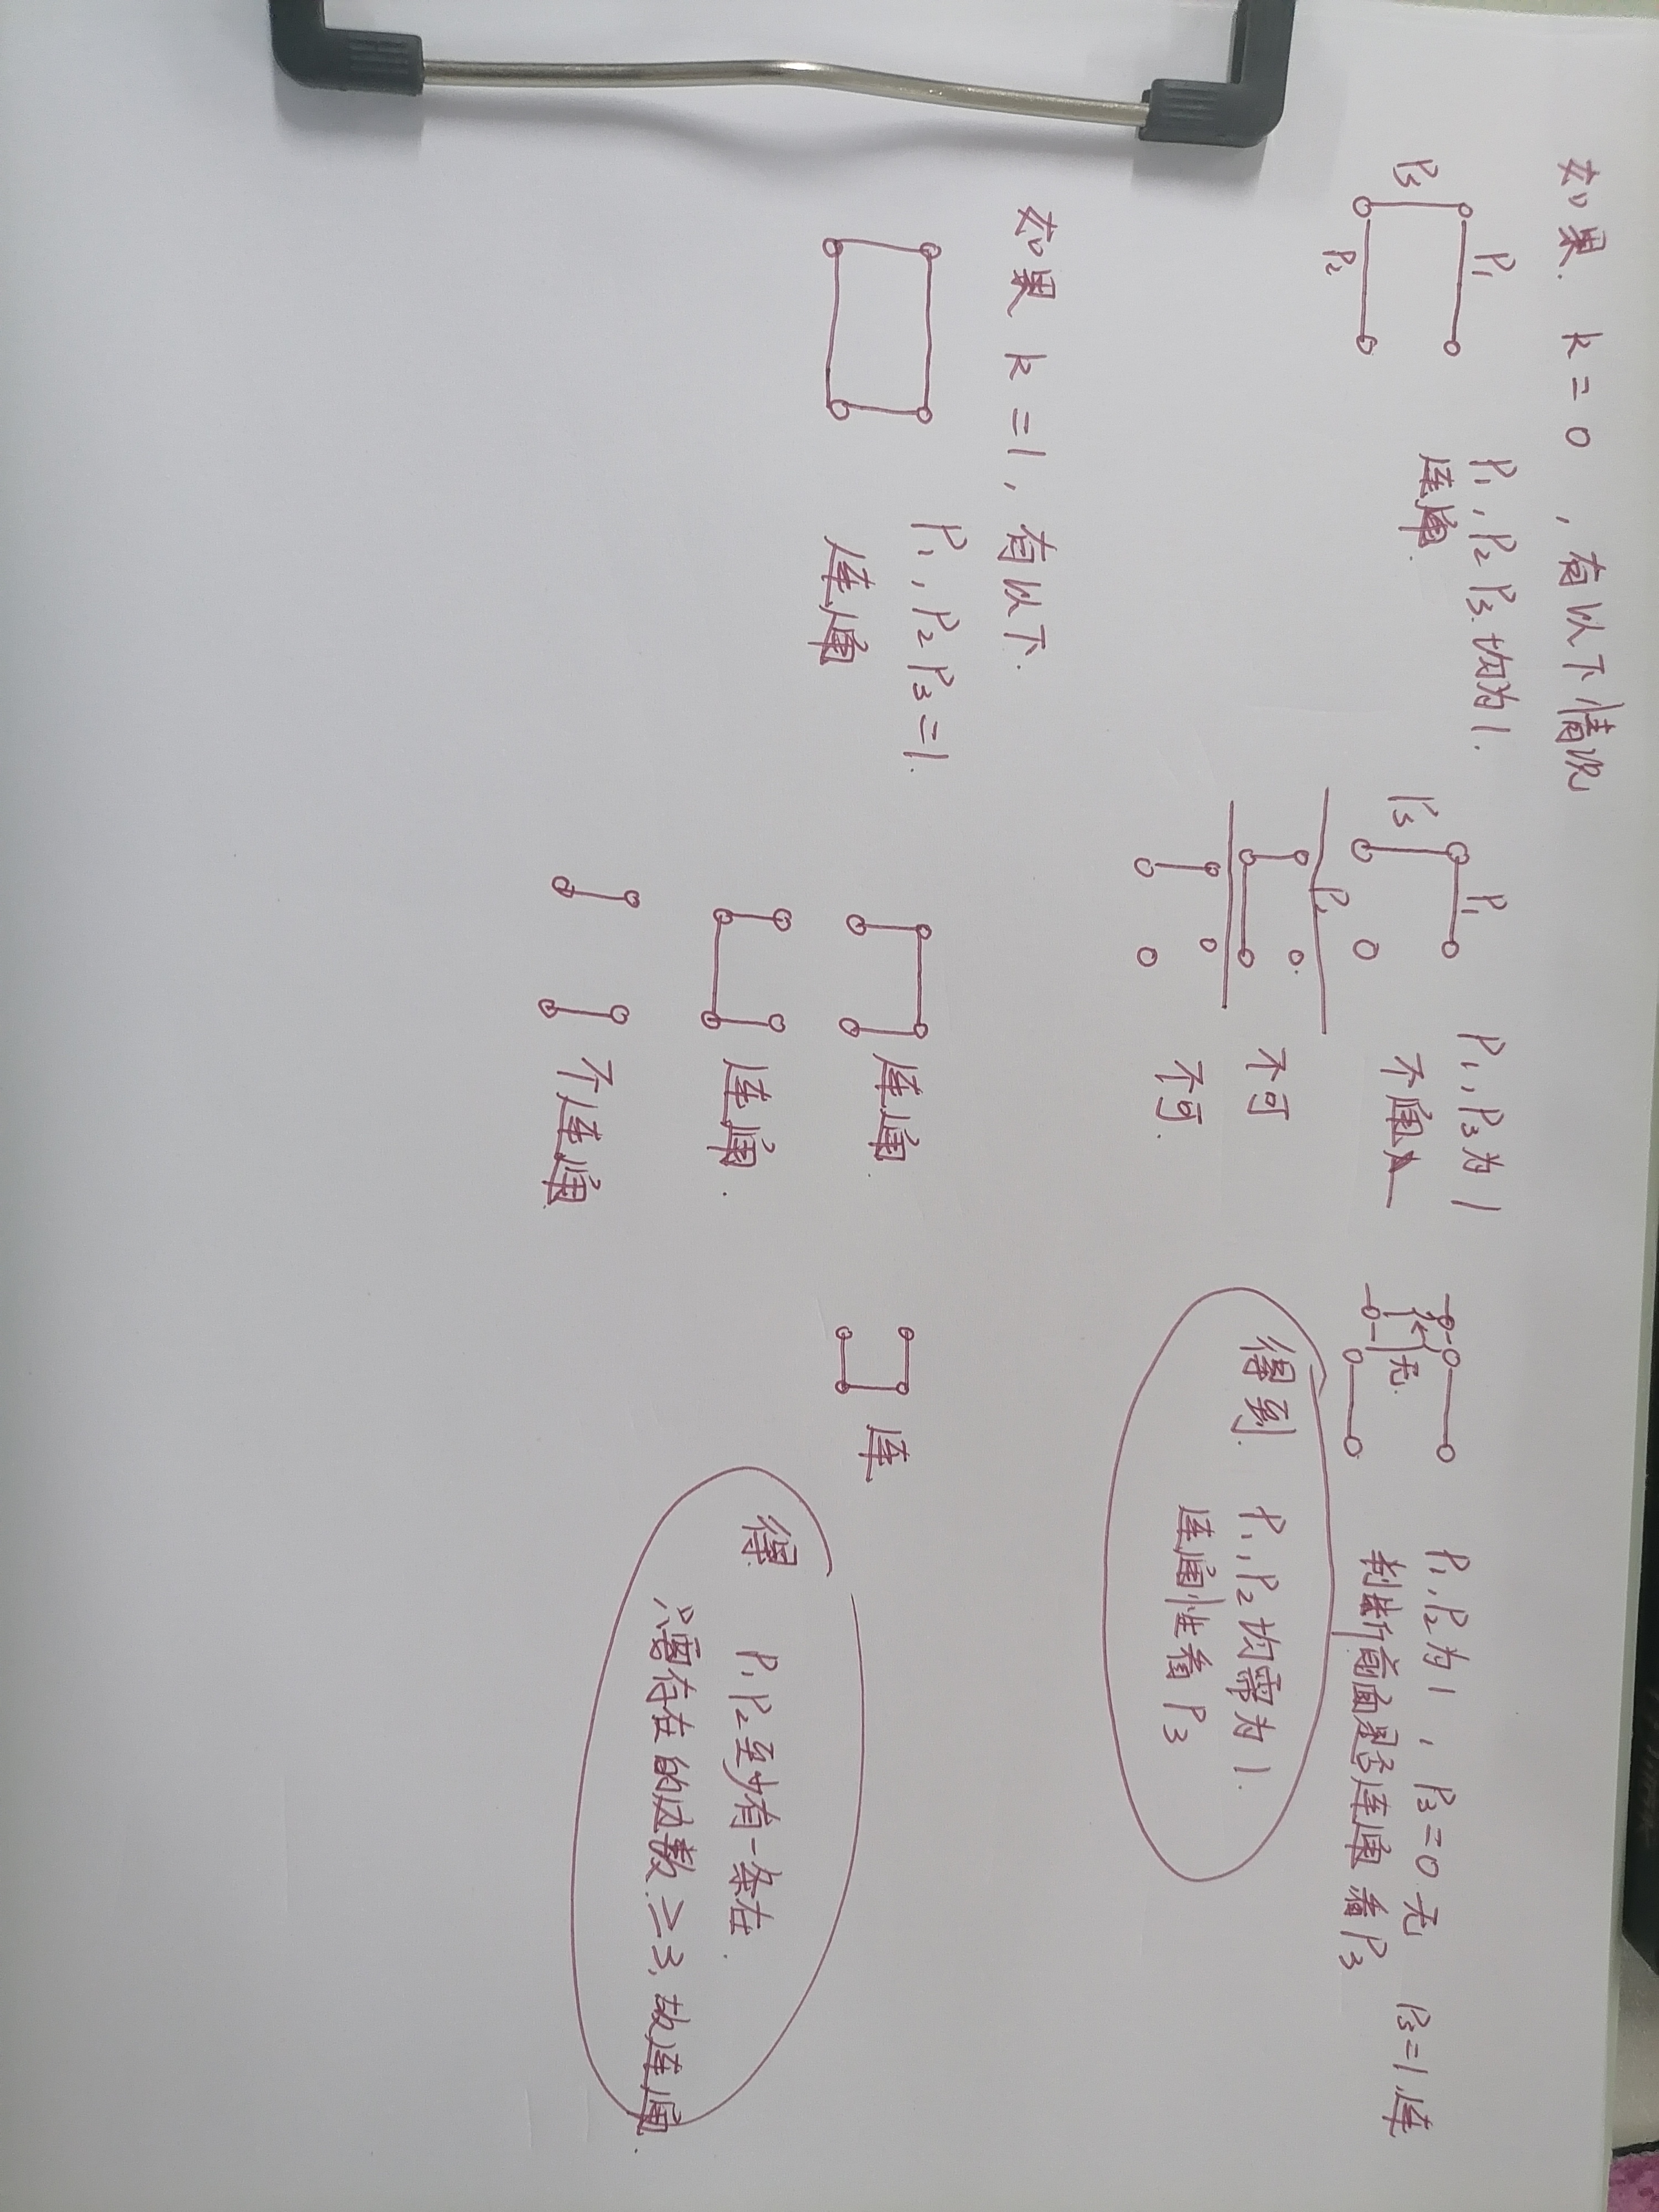 如果 k=0，有以下情况
P₃ P₁
P₂
P₁,P₂ P₃ 均为1.
连通.
P₃ P₁
P₁,P₃为1
不通
P₂
不可
不可.
无.
P₁,P₂为1，P₃=0 无
判断前面是否连通 看P₃
P₃=1,连
得到. P₁,P₂均需为1.
连通性看P₃
如果 k=1，有以下.
P₁,P₂ P₃=1.
连通
连通.
连通.
不连通
连
得 P₁P₂至少有一条在.
只要存在的边数≥3,故连通.